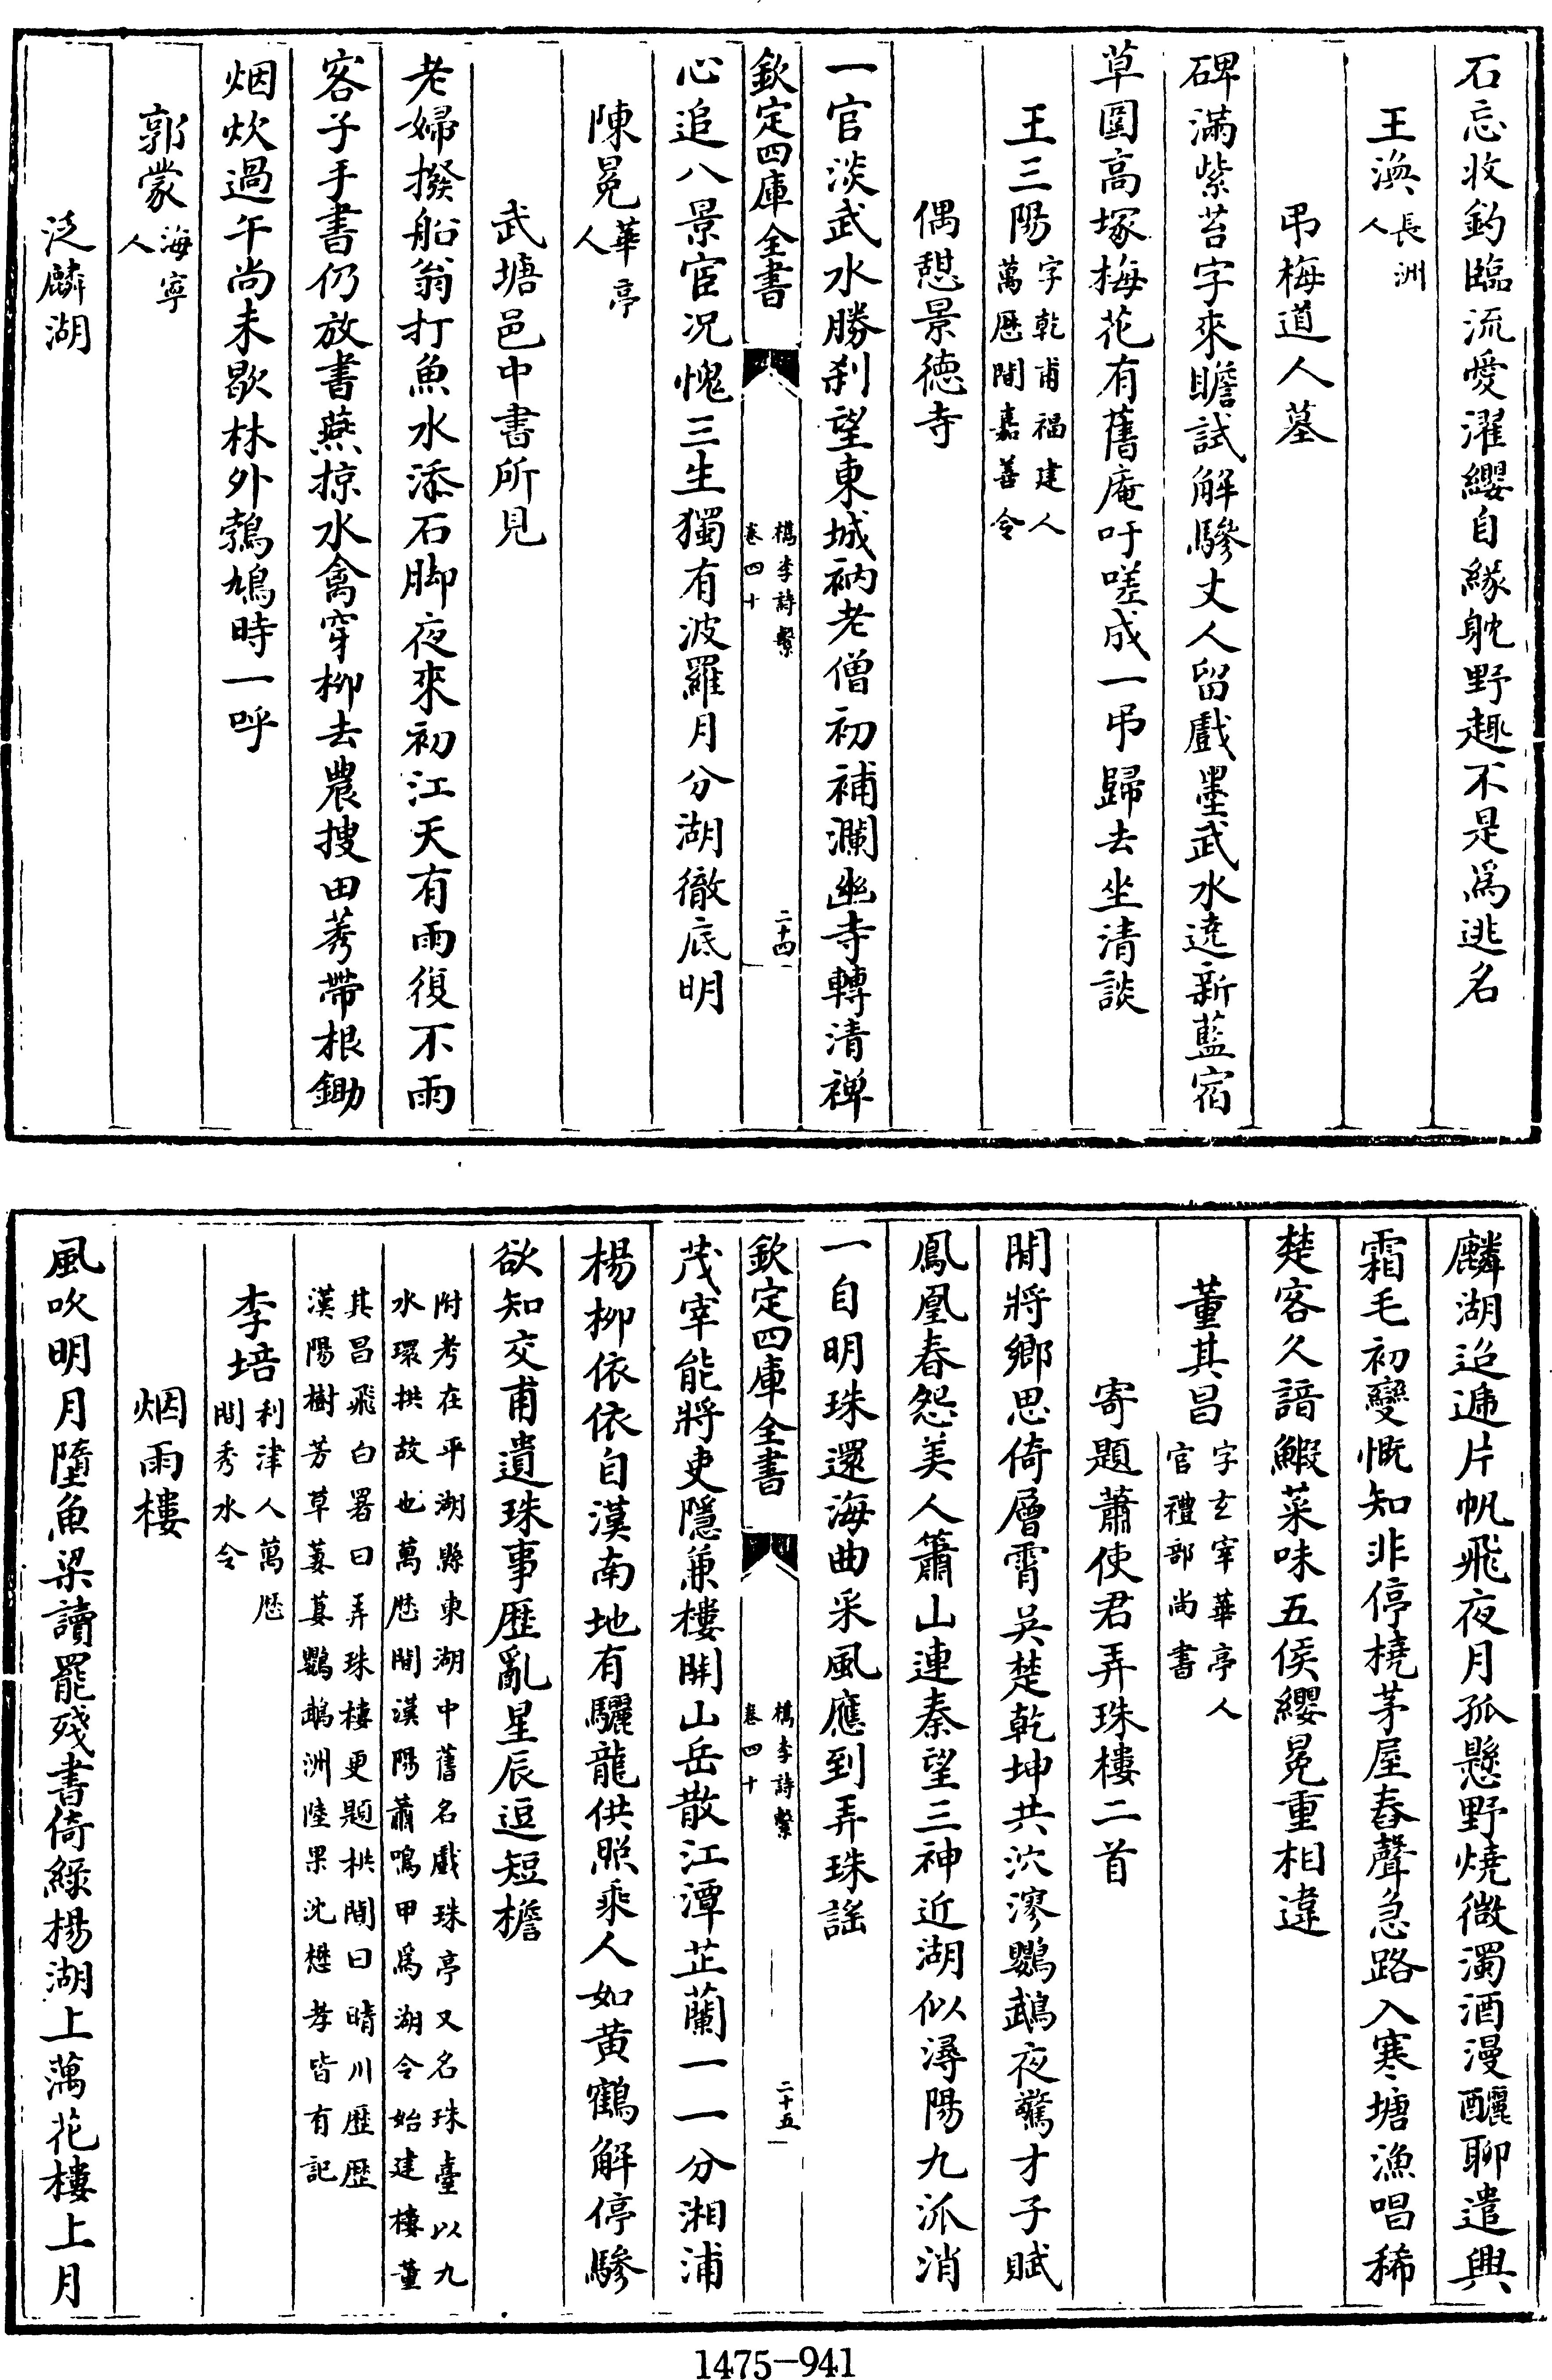 石忘收釣臨流愛濯纓自緣躭野趣不是爲逃名
王渙長洲人
弔梅道人墓
碑滿紫苔字來瞻試解驂丈人留戲墨武水遶新藍宿
草圍高塚梅花有舊庵吁嗟成一弔歸去坐清談
王三陽字乾甫福建人萬歴間嘉善令
偶憇景徳寺
一官淡武水勝刹望東城衲老僧初補瀾幽寺轉清禅
欽定四庫全書
檇李詩繫
卷四十
二十四
心追八景宦况愧三生獨有波羅月分湖徹底明
陳冕華亭人
武塘邑中書所見
老婦撥船翁打魚水添石脚夜來初江天有雨復不雨
客子手書仍放書燕掠水禽穿柳去農搜田莠帶根鋤
烟炊過午尚未歇林外鵓鳩時一呼
郭蒙海寧人
泛麟湖
麟湖迢遞片帆飛夜月孤懸野燒微濁酒漫釃聊遣興
霜毛初變慨知非停橈茅屋舂聲急路入寒塘漁唱稀
楚客久諳鰕菜味五侯纓冕重相違
董其昌字玄宰華亭人官禮部尚書
寄題蕭使君弄珠樓二首
閒將鄉思倚層霄吳楚乾坤共泬漻鸚鵡夜驚才子賦
鳳凰春怨美人簫山連秦望三神近湖似潯陽九派消
一自明珠還海曲采風應到弄珠謡
欽定四庫全書
檇李詩繫
卷四十
二十五
茂宰能將吏隱兼樓開山岳散江潭芷蘭一一分湘浦
楊柳依依自漢南地有驪龍供照乘人如黄鶴解停驂
欲知交甫遺珠事歴亂星辰逗短檐
附考在平湖縣東湖中舊名戲珠亭又名珠臺以九
水環拱故也萬歴間漢陽蕭鳴甲爲湖令始建樓董
其昌飛白署曰弄珠樓更題栱間曰晴川歴歴
漢陽樹芳草萋萋鸚鵡洲陸果沈懋孝皆有記
李培利津人萬歴間秀水令
烟雨樓
風吹明月墮魚梁讀罷殘書倚綠楊湖上藕花樓上月
1475-941